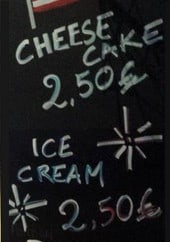 CHEESE
CAKE
2,50£
ICE
CREAM
2,50£